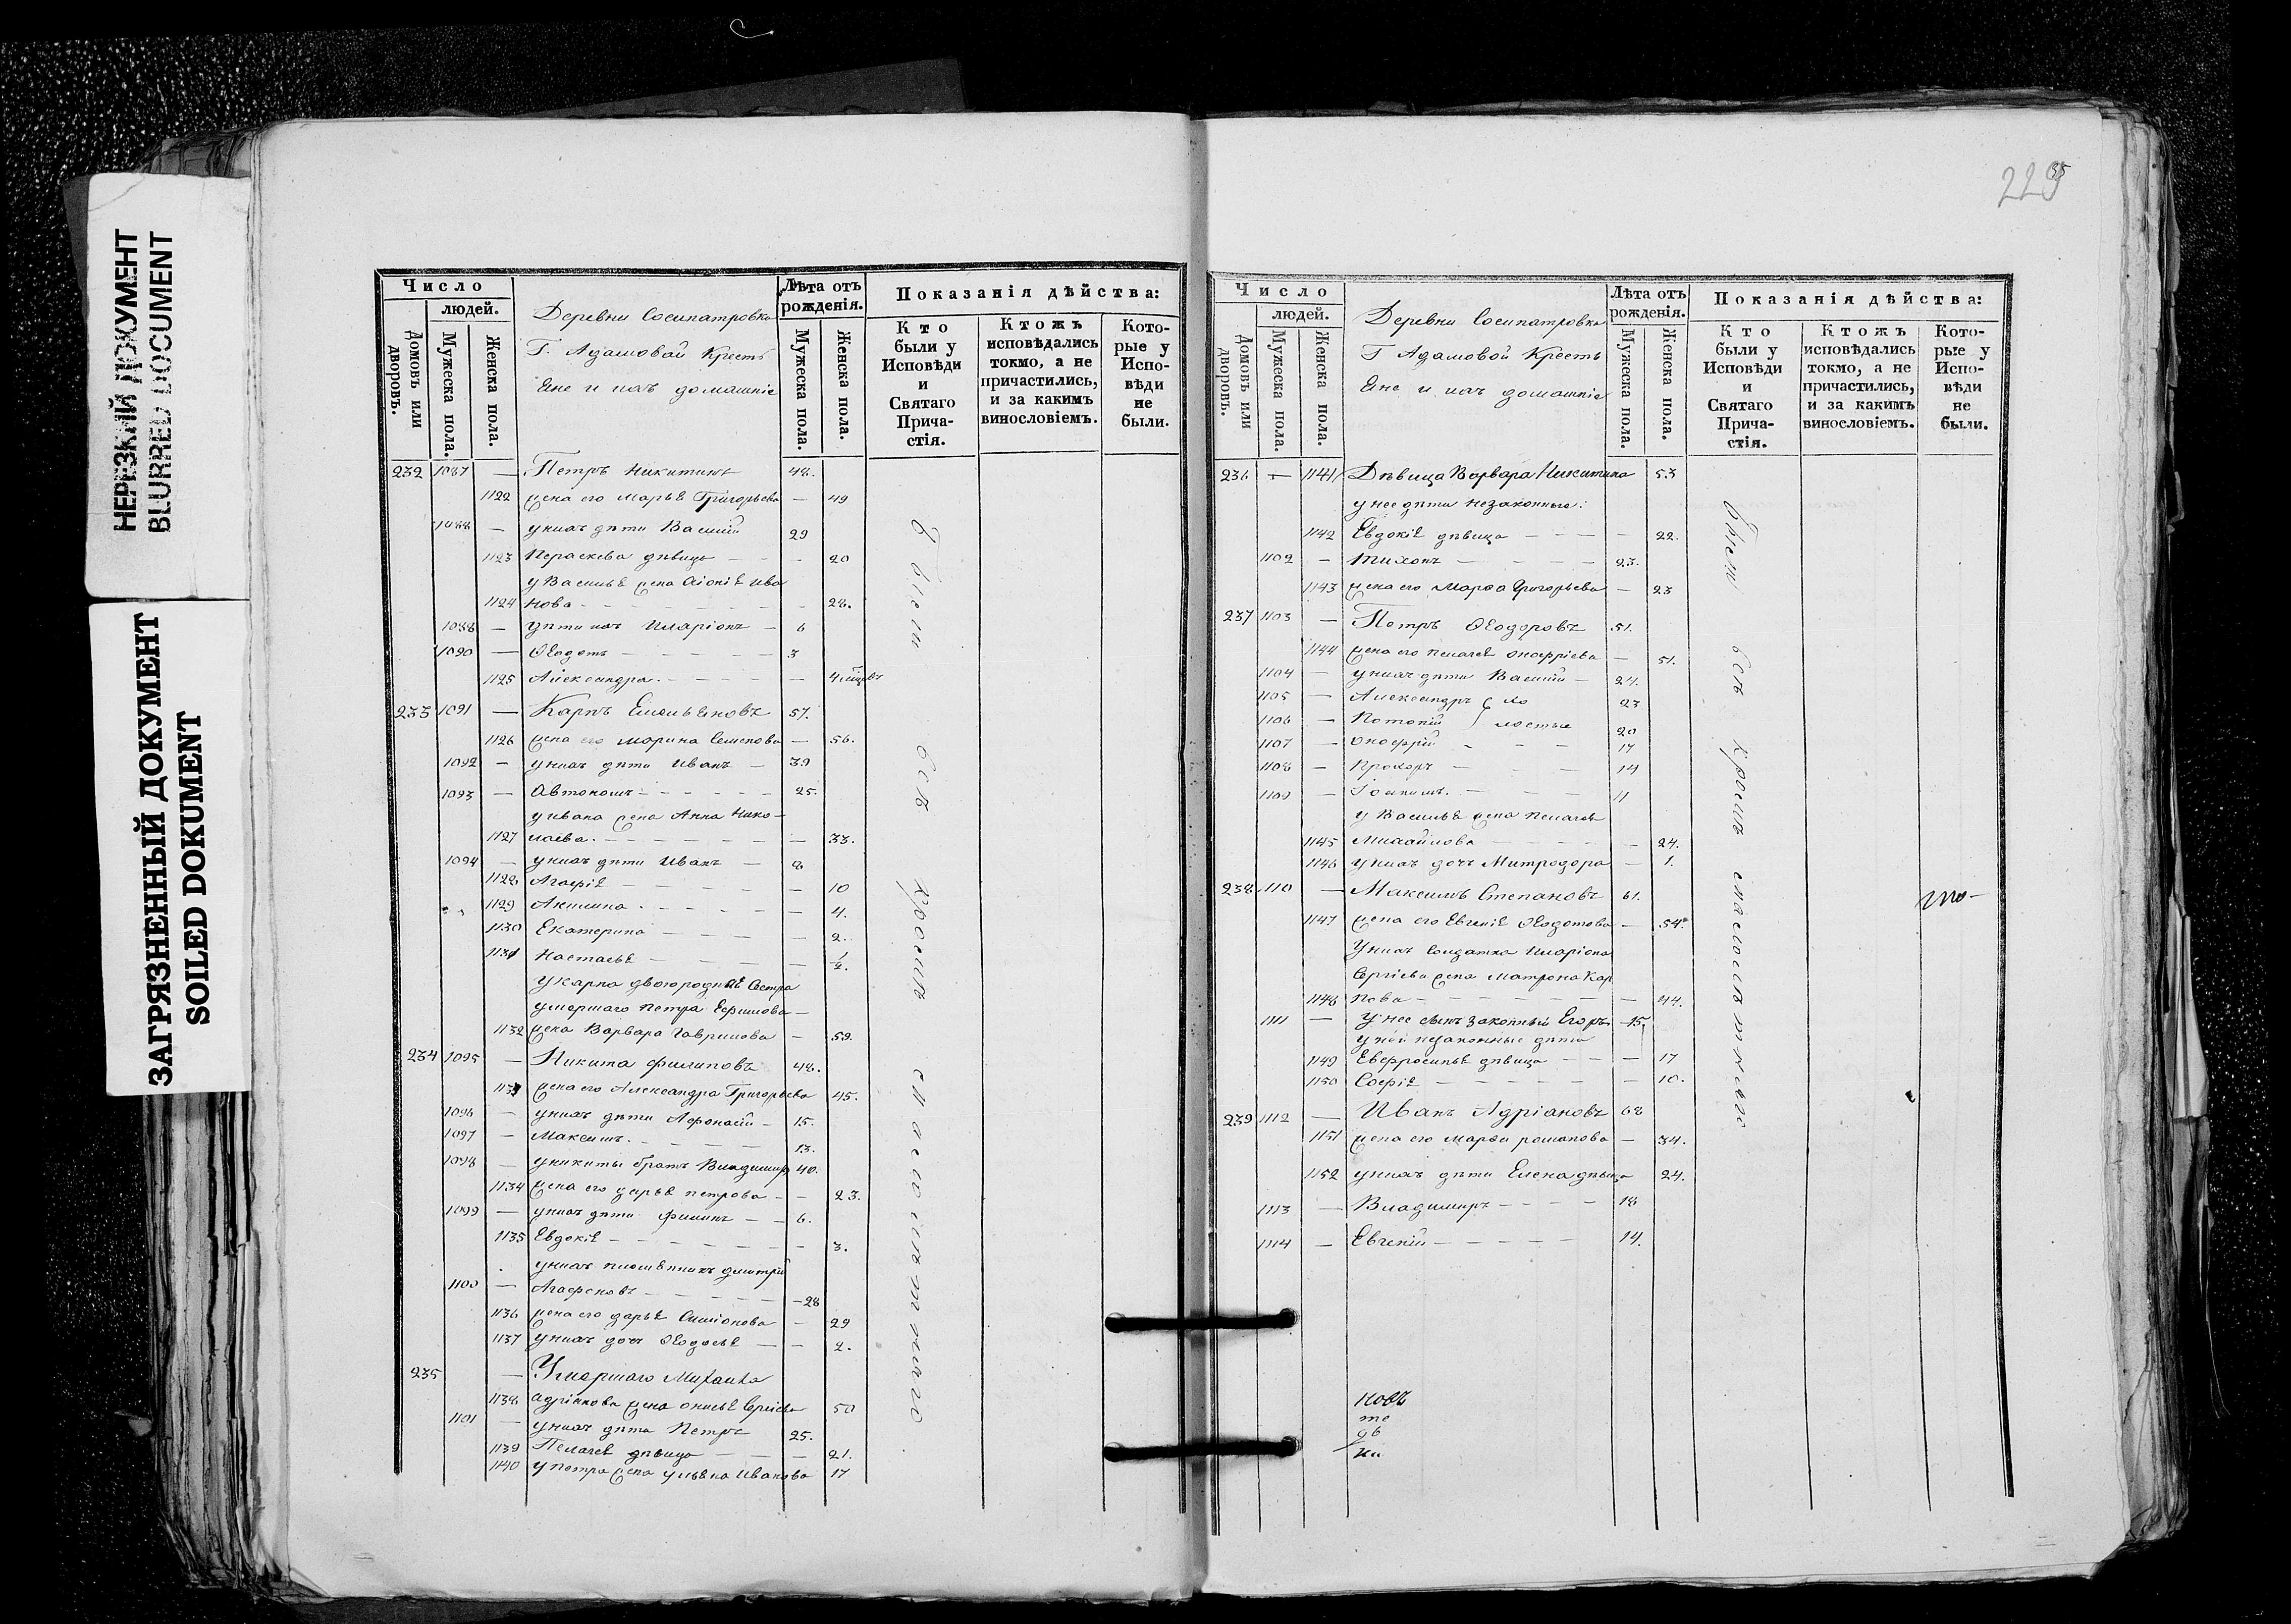 НЕРЕЗКИЙ ДОКУМЕНТ
BLURRED DOCUMENT
ЗАГРЯЗНЕННЫЙ ДОКУМЕНТ
SOILED DOKUMENT
Число
людей.
Домовъ или дворовъ.
Мужеска пола.
Женска пола.
Деревни Сосипатровки
Г. Адамовой Кресть
яне и ихъ домашніе
Лѣта отъ рожденія.
Мужеска пола.
Женска пола.
Показанія дѣйства:
Кто были у Исповѣди и Святаго Прича-стія.
Ктожъ исповѣдались токмо, а не причастились, и за какимъ винословіемъ.
Кото-рые у Испо-вѣди не были.
232 1087 — Петръ Никитинъ 48.
1122 жена его Марья Григорьева — 49
1088 — у нихъ дѣти Василий 29
1123 Параскева дѣвица — — — 20
у Василья жена Ива
1124 нова — 28.
1088 — дѣти ихъ Иларіонъ — 6
1090 — Ѳеодотъ — 3
1125 Александра. — — 4
233 1091 — Карпъ Емельяновъ 57.
1126 жена его Марина Семенова — 56.
1092 — у нихъ дѣти Иванъ — 39
1093 — Автономъ — 25.
у Ивана жена Анна Нико-
1127 лаева. — — 33.
1094 — у нихъ дѣти Иванъ — 8
1128 Агафія — — 10
1129 Акилина — — 4.
1130 Екатерина — — 2.
1131 Настасья — — ½.
у Карпа двоюродной сестра
умершаго Петра Ефимова —
1132 жена Варвара Гаврилова — 59.
234 1095 — Никита Филиповъ 48.
113 жена его Александра Григорьева 45.
1096 — у нихъ дѣти Афонасій — 15.
1097 — Максимъ. — 13.
1098 — у Никиты братъ Владимиръ 40.
1134 жена его Дарья Петрова — — 23.
1099 — у нихъ дѣти Филипъ — — 6.
1135 Евдокія — — 3.
у нихъ племянникъ Дмитрій
1100 — Агафоновъ — 28
1136 жена его Дарья Симіонова — 29
1137 у нихъ дочь Ѳеодосья — — 2.
235 — Умершаго Михаила
1138 Адріянова жена Сергіева 50
1101 — у нихъ дѣти Петръ 25.
1139 Пелагея дѣвица — — 21.
1140 у Петра жена Ульяна Иванова 17
были
всѣ
кромѣ
малолѣтнаго
229
Число
людей.
Домовъ или дворовъ.
Мужеска пола.
Женска пола.
Деревни Сосипатровки
Г Адамовой Кресть
яне и ихъ домашніе
Лѣта отъ рожденія.
Мужеска пола.
Женска пола.
Показанія дѣйства:
Кто были у Исповѣди и Святаго Прича-стія.
Ктожъ исповѣдались токмо, а не причастились, и за какимъ винословіемъ.
Кото-рые у Испо-вѣди не были.
236 — 1141 Дѣвица Варвара Никитина 53
у нее дѣти незаконные:
1142 Евдокія дѣвица — — — — 22.
1102 — Тихонъ — 23.
1143 жена его Марѳа Григорьева — 23
237 1103 — Петръ Ѳеодоровъ 51.
1144 жена его Пелагея Онофріева — 51.
1104 — у нихъ дѣти Василий — 24.
1105 — Александръ хо 23
1106 — Потапій лостые 20
1107 — Онофрій — 17
1108 — Прохоръ — 14
1109 — Іоакимъ. — 11
у Василья жена Пелагея
1145 Михайлова — — 24.
1146 у нихъ дочь Митродора — 1.
238 1110 — Максимъ Степановъ 61.
1147 жена его Евгенія Ѳеодотова — 54.
у нихъ солдатка Иларіона
Сергіева жена Матрона Кар
1148 пова — — 44.
1111 — у нее сынъ законный Егоръ 15.
у ней незаконные дѣти
1149 Евфросинья дѣвица — — — 17
1150 Софія — — 10.
239 1112 — Иванъ Адріановъ 68
1151 жена его Марѳа Романова — 34.
1152 у нихъ дѣти Елена дѣвица 24.
1113 — Владимиръ — 18
1114 — Евгеній — 14.
были
всѣ
кромѣ
малолѣтнаго
новъ
те